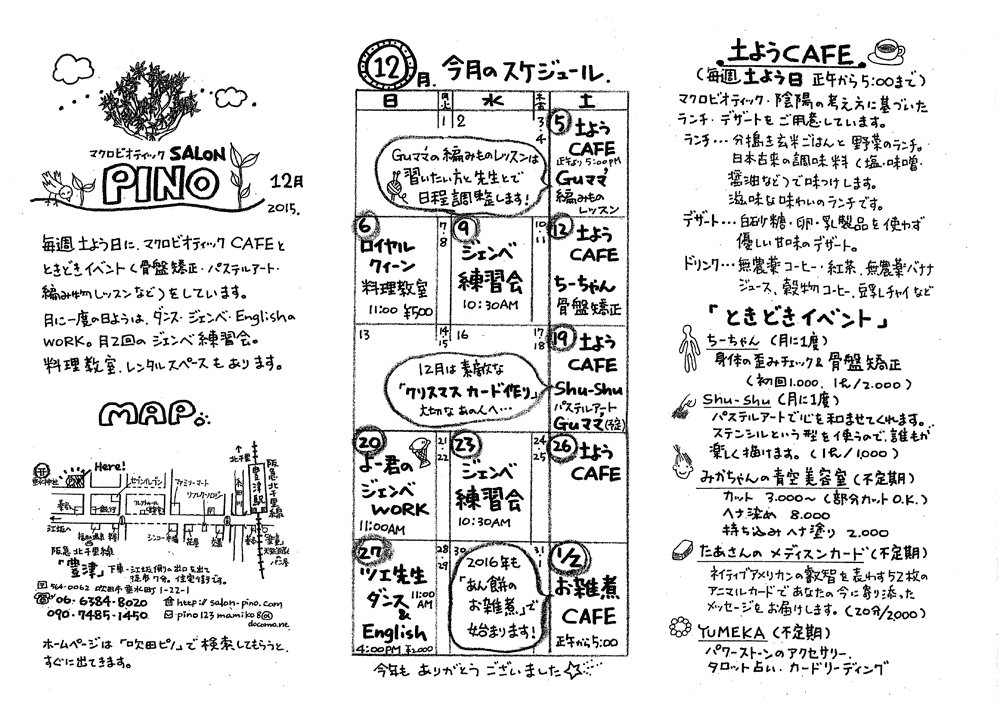 マクロビオティック SALON
PINO
12月
2015.
毎週 土よう日に、マクロビオティック CAFEと
ときどきイベント(骨盤矯正・パステルアート・
編み物レッスンなど)をしています。
月に一度の日ようは、ダンス・ジェンベ・Englishの
WORK。月2回の ジェンベ練習会。
料理教室、レンタルスペースも あります。
MAP
Here!
セブンイレブン
ファミリーマート
豊津駅
阪急北千里線
北千里
江坂へ
阪急北千里線
「豊津」下車・江坂側の出口を出て
徒歩7分。住宅街です。
〒564-0062 吹田市垂水町1-22-1
06・6384・8020
http://salon-pino.com
090・7485・1450
pino123mamiko8@
docomo.ne.
ホームページは「吹田ピノ」で 検索してもらうと、
すぐに出てきます。
12月. 今月のスケジュール.
日 月火 水 木金 土
1
2
3・4
⑤ 土よう
CAFE
正午より 5:00PM
Guママ
編みもの
レッスン
Guママの 編みものレッスンは
習いたい方と先生とで
日程調整します!
⑥
ロイヤル
クイーン
料理教室
11:00 ¥500
7・8
⑨
ジェンベ
練習会
10:30AM
10・11
⑫ 土よう
CAFE
ちーちゃん
骨盤矯正
13
14・15
16
17・18
⑲ 土よう
CAFE
Shu-Shu
パステルアート
Guママ(予定)
12月は 素敵な
「クリスマス カード作り」
大切な あの人へ…
⑳
よー君の
ジェンベ
WORK
11:00AM
21・22
㉓
ジェンベ
練習会
10:30AM
24・25
㉖ 土よう
CAFE
㉗
ツエ先生
ダンス 11:00AM
&
English
4:00PM ¥2000
28・29
30
31
2016年も
「あん餅の
お雑煮」で
始まります!
1/2
お雑煮
CAFE
正午から5:00
今年も ありがとう ございました☆
土ようCAFE
(毎週 土よう日 正午から 5:00まで)
マクロビオティック・陰陽の考え方に基づいた
ランチ・デザートをご用意しています。
ランチ… 分搗き玄米ごはんと 野菜のランチ。
日本古来の調味料(塩・味噌・
醤油など)で味つけします。
滋味な味わいのランチです。
デザート… 白砂糖・卵・乳製品を使わず
優しい甘味のデザート。
ドリンク… 無農薬コーヒー・紅茶、無農薬バナナ
ジュース、穀物コーヒー、豆乳チャイ など
「ときどきイベント」
ちーちゃん (月に1度)
身体の歪みチェック & 骨盤矯正
(初回1.000, 1h/2.000)
Shu-Shu (月に1度)
パステルアートで心を和ませてくれます。
ステンシルという型を使うので、誰もが
楽しく描けます。(1h/1,000)
みかちゃんの 青空美容室(不定期)
カット 3.000〜(部分カットO.K.)
ヘナ染め 8.000
持ち込みヘナ塗り 2.000
たあさんの メディスンカード(不定期)
ネイティブアメリカンの叡智を表わす52枚の
アニマルカードであなたの今に寄り添った
メッセージをお届けします。(20分/2000)
YUMEKA (不定期)
パワーストーンのアクセサリー.
タロット占い・カードリーディング